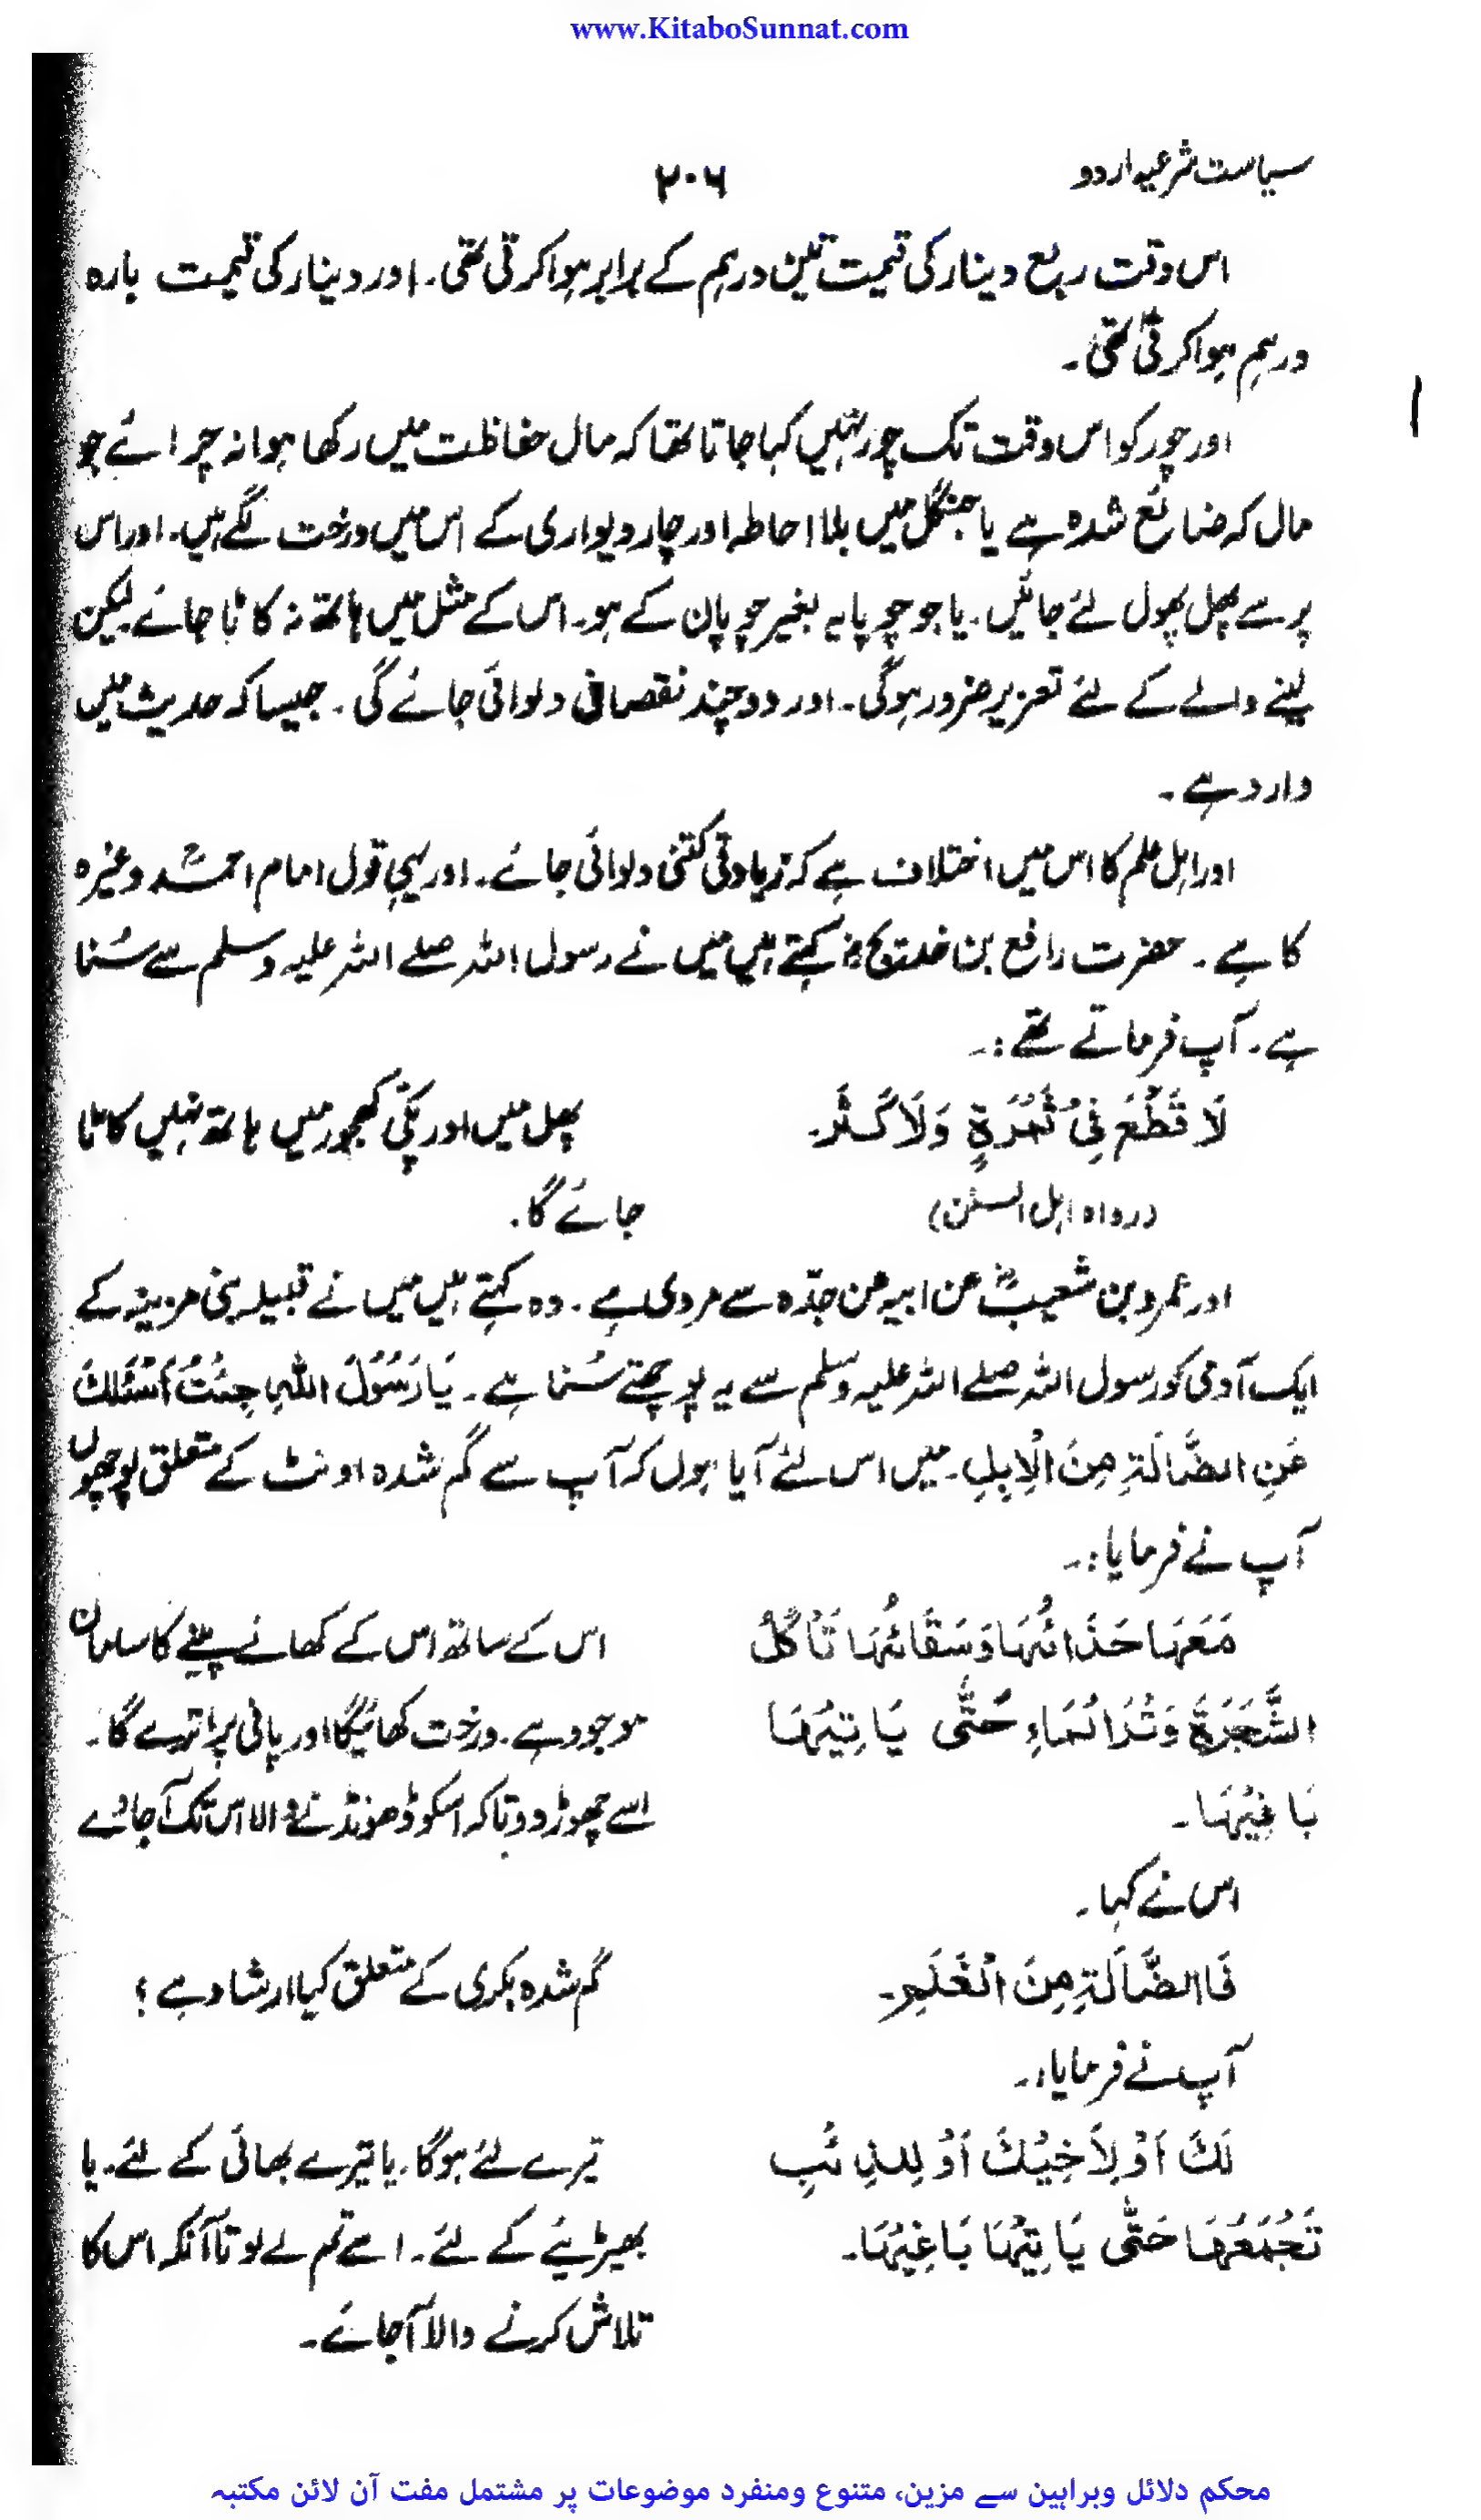 www.KitaboSunnat.com
سیاست شرعیہ اردو ۲۰۶
اس وقت ربع دینار کی قیمت تین درہم کے برابر ہوا کرتی تھی۔ اور دینار کی قیمت بارہ
درہم ہوا کرتی تھی۔
اور چور کو اس وقت تک چور نہیں کہا جاتا تھا کہ مال حفاظت میں رکھا ہوا نہ چرائے جو
مال کہ ضائع شدہ ہے یا جنگل میں بلا احاطہ اور چار دیواری کے اس میں درخت لگے ہیں۔ اور اس
پر سے پھل پھول لئے جائیں۔ یا جو چوپایہ بغیر چوپان کے ہو۔ اس کے مثل میں ہاتھ نہ کاٹا جائے لیکن
لینے والے کے لئے تعزیر ضرور ہوگی۔ اور دو چند نقصان دلوائی جائے گی۔ جیسا کہ حدیث میں
وارد ہے۔
اور اہل علم کا اس میں اختلاف ہے کہ زیادتی کتنی دلوائی جائے۔ اور یہی قول امام احمدؒ وغیرہ
کا ہے۔ حضرت رافع بن خدیج رضؓ کہتے ہیں میں نے رسول اللہ صلے اللہ علیہ وسلم سے سُنا
ہے۔ آپ فرماتے تھے:۔
لَا قَطْعَ فِیْ ثَمَرَۃٍ وَلَا کَثَر۔ پھل میں اور پکی کھجور میں ہاتھ نہیں کاٹا
(رواہ اہل السنن) جائے گا۔
اور عمرو بن شعیبؓ عن ابیہ عن جدّہ سے مروی ہے۔ وہ کہتے ہیں میں نے قبیلہ بنی مزینہ کے
ایک آدمی کو رسول اللہ صلے اللہ علیہ وسلم سے یہ پوچھتے سُنا ہے۔ یَا رَسُوْلَ اللّٰہِ جِئْتُ اَسْئَلُکَ
عَنِ الضَّالَۃِ مِنَ الْاِبِلِ۔ میں اس لئے آیا ہوں کہ آپ سے گم شدہ اونٹ کے متعلق پوچھوں
آپ نے فرمایا:۔
مَعَہَا حَذَائُہَا وَسَقَائُہَا تَاْکُلُ اس کے ساتھ اس کے کھانے پینے کا سامان
الشَّجَرَۃَ وَتُرَدُّ الْمَاءِ حَتّٰی یَاتِیْہَا موجود ہے۔ درخت کھائیگا اور پانی پر اترے گا۔
بَاغِیْہَا۔ اسے چھوڑ دو تاکہ اسکو ڈھونڈنے والا اس تک آجائے
اس نے کہا۔
فَاالضَّالَۃِ مِنَ الْغَنَمِ۔ گم شدہ بکری کے متعلق کیا ارشاد ہے؟
آپ نے فرمایا:۔
لَکَ اَوْ لِاَخِیْکَ اَوْ لِلذِئْبِ تیرے لئے ہوگا۔ یا تیرے بھائی کے لئے۔ یا
تَجْمَعَہَا حَتّٰی یَاتِیْہَا بَاغِیْہَا۔ بھیڑیئے کے لئے۔ اسے تم لے لو تاآنکہ اس کا
تلاش کرنے والا آجائے۔
محکم دلائل وبراہین سے مزین، متنوع ومنفرد موضوعات پر مشتمل مفت آن لائن مکتبہ